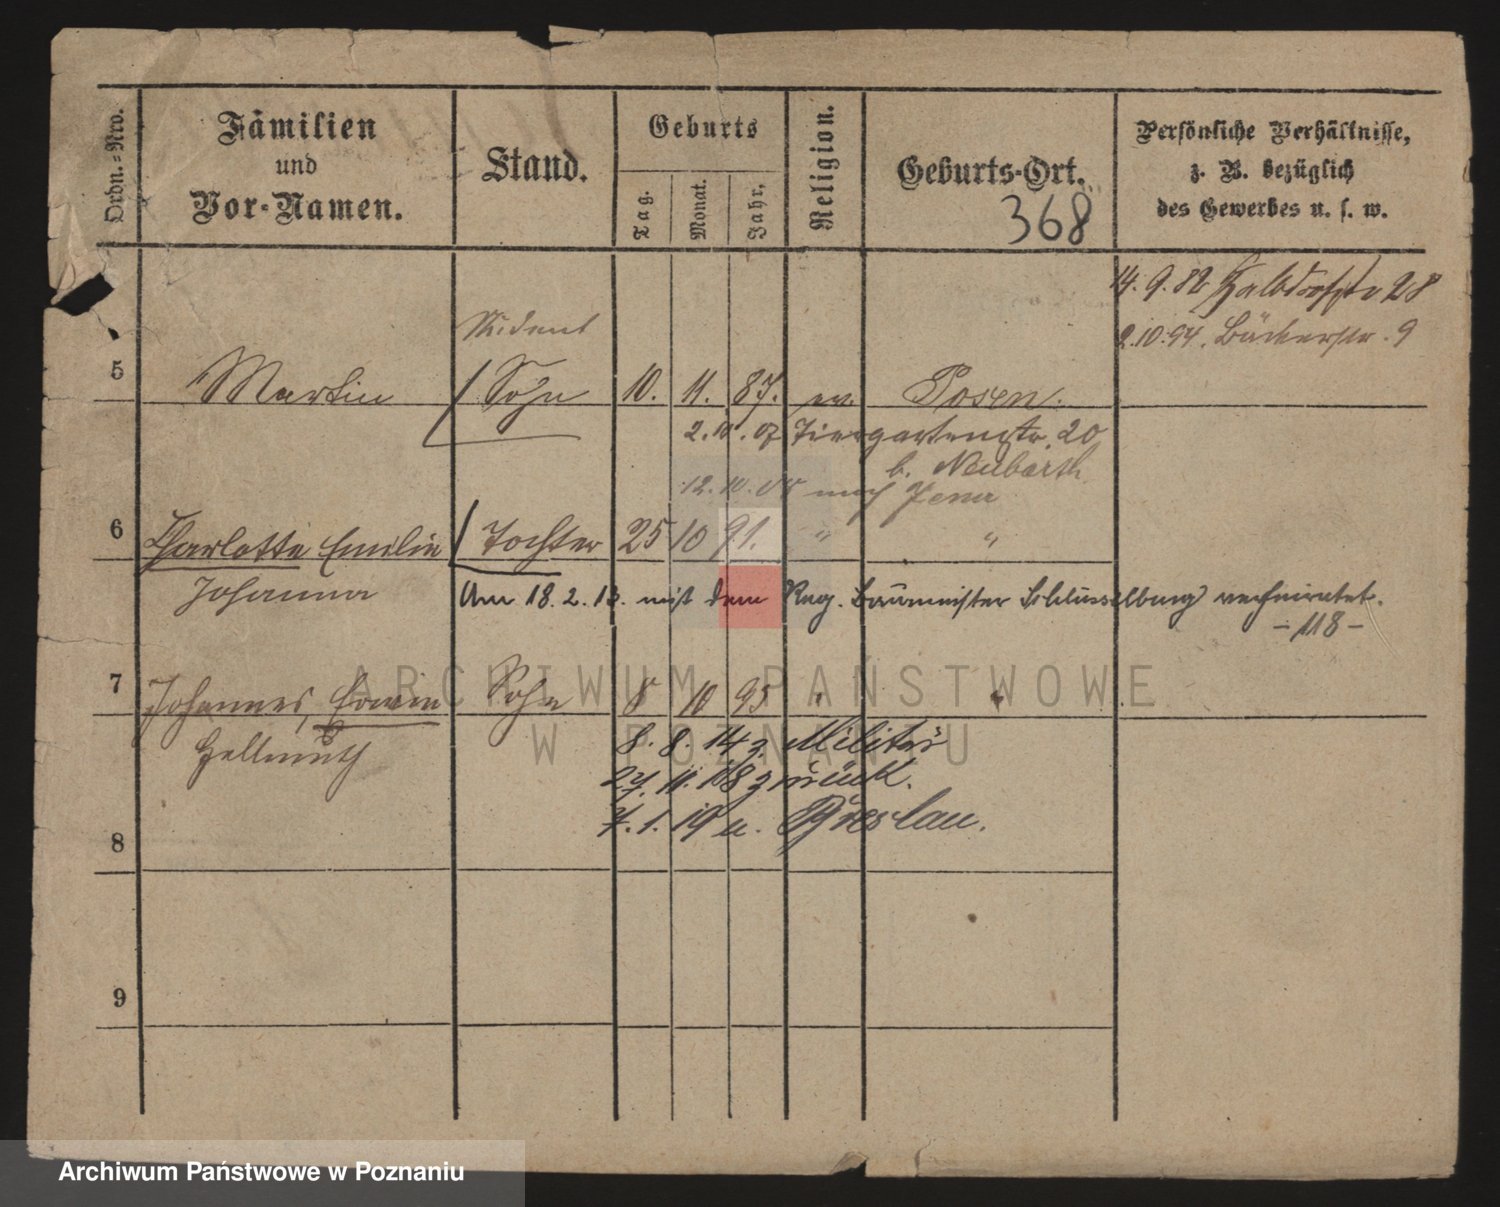 Ordn.-Nro. Familien und Vor-Namen. Stand. Geburts Tag. Monat. Jahr. Religion. Geburts-Ort. Persönliche Verhältnisse, z. B. bezüglich des Gewerbes u. s. w.
368
14. 9. 82 Halbdorfstr 28
2.10.94. Bäckerstr. 9
Student
5 Martin / Sohn 10. 11. 87. ev. Posen.
2. 10. 07 Tiergartenstr. 20
b. Neubarth
12. 10. 08 nach Jena
6 Charlotte Emilie / Tochter 25 10 91. " "
Johanna Am 18. 2. 13. mit dem Reg. Baumeister Schlusselburg verheiratet.
-118-
7 Johannes, Erwin Sohn 8 10 95 " "
Hellmuth 8. 8. 14 z. Militär
27. 11. 18 zurück.
7. 1. 19 n. Breslau.
8
9
ARCHIWUM PAŃSTWOWE
W POZNANIU
Archiwum Państwowe w Poznaniu